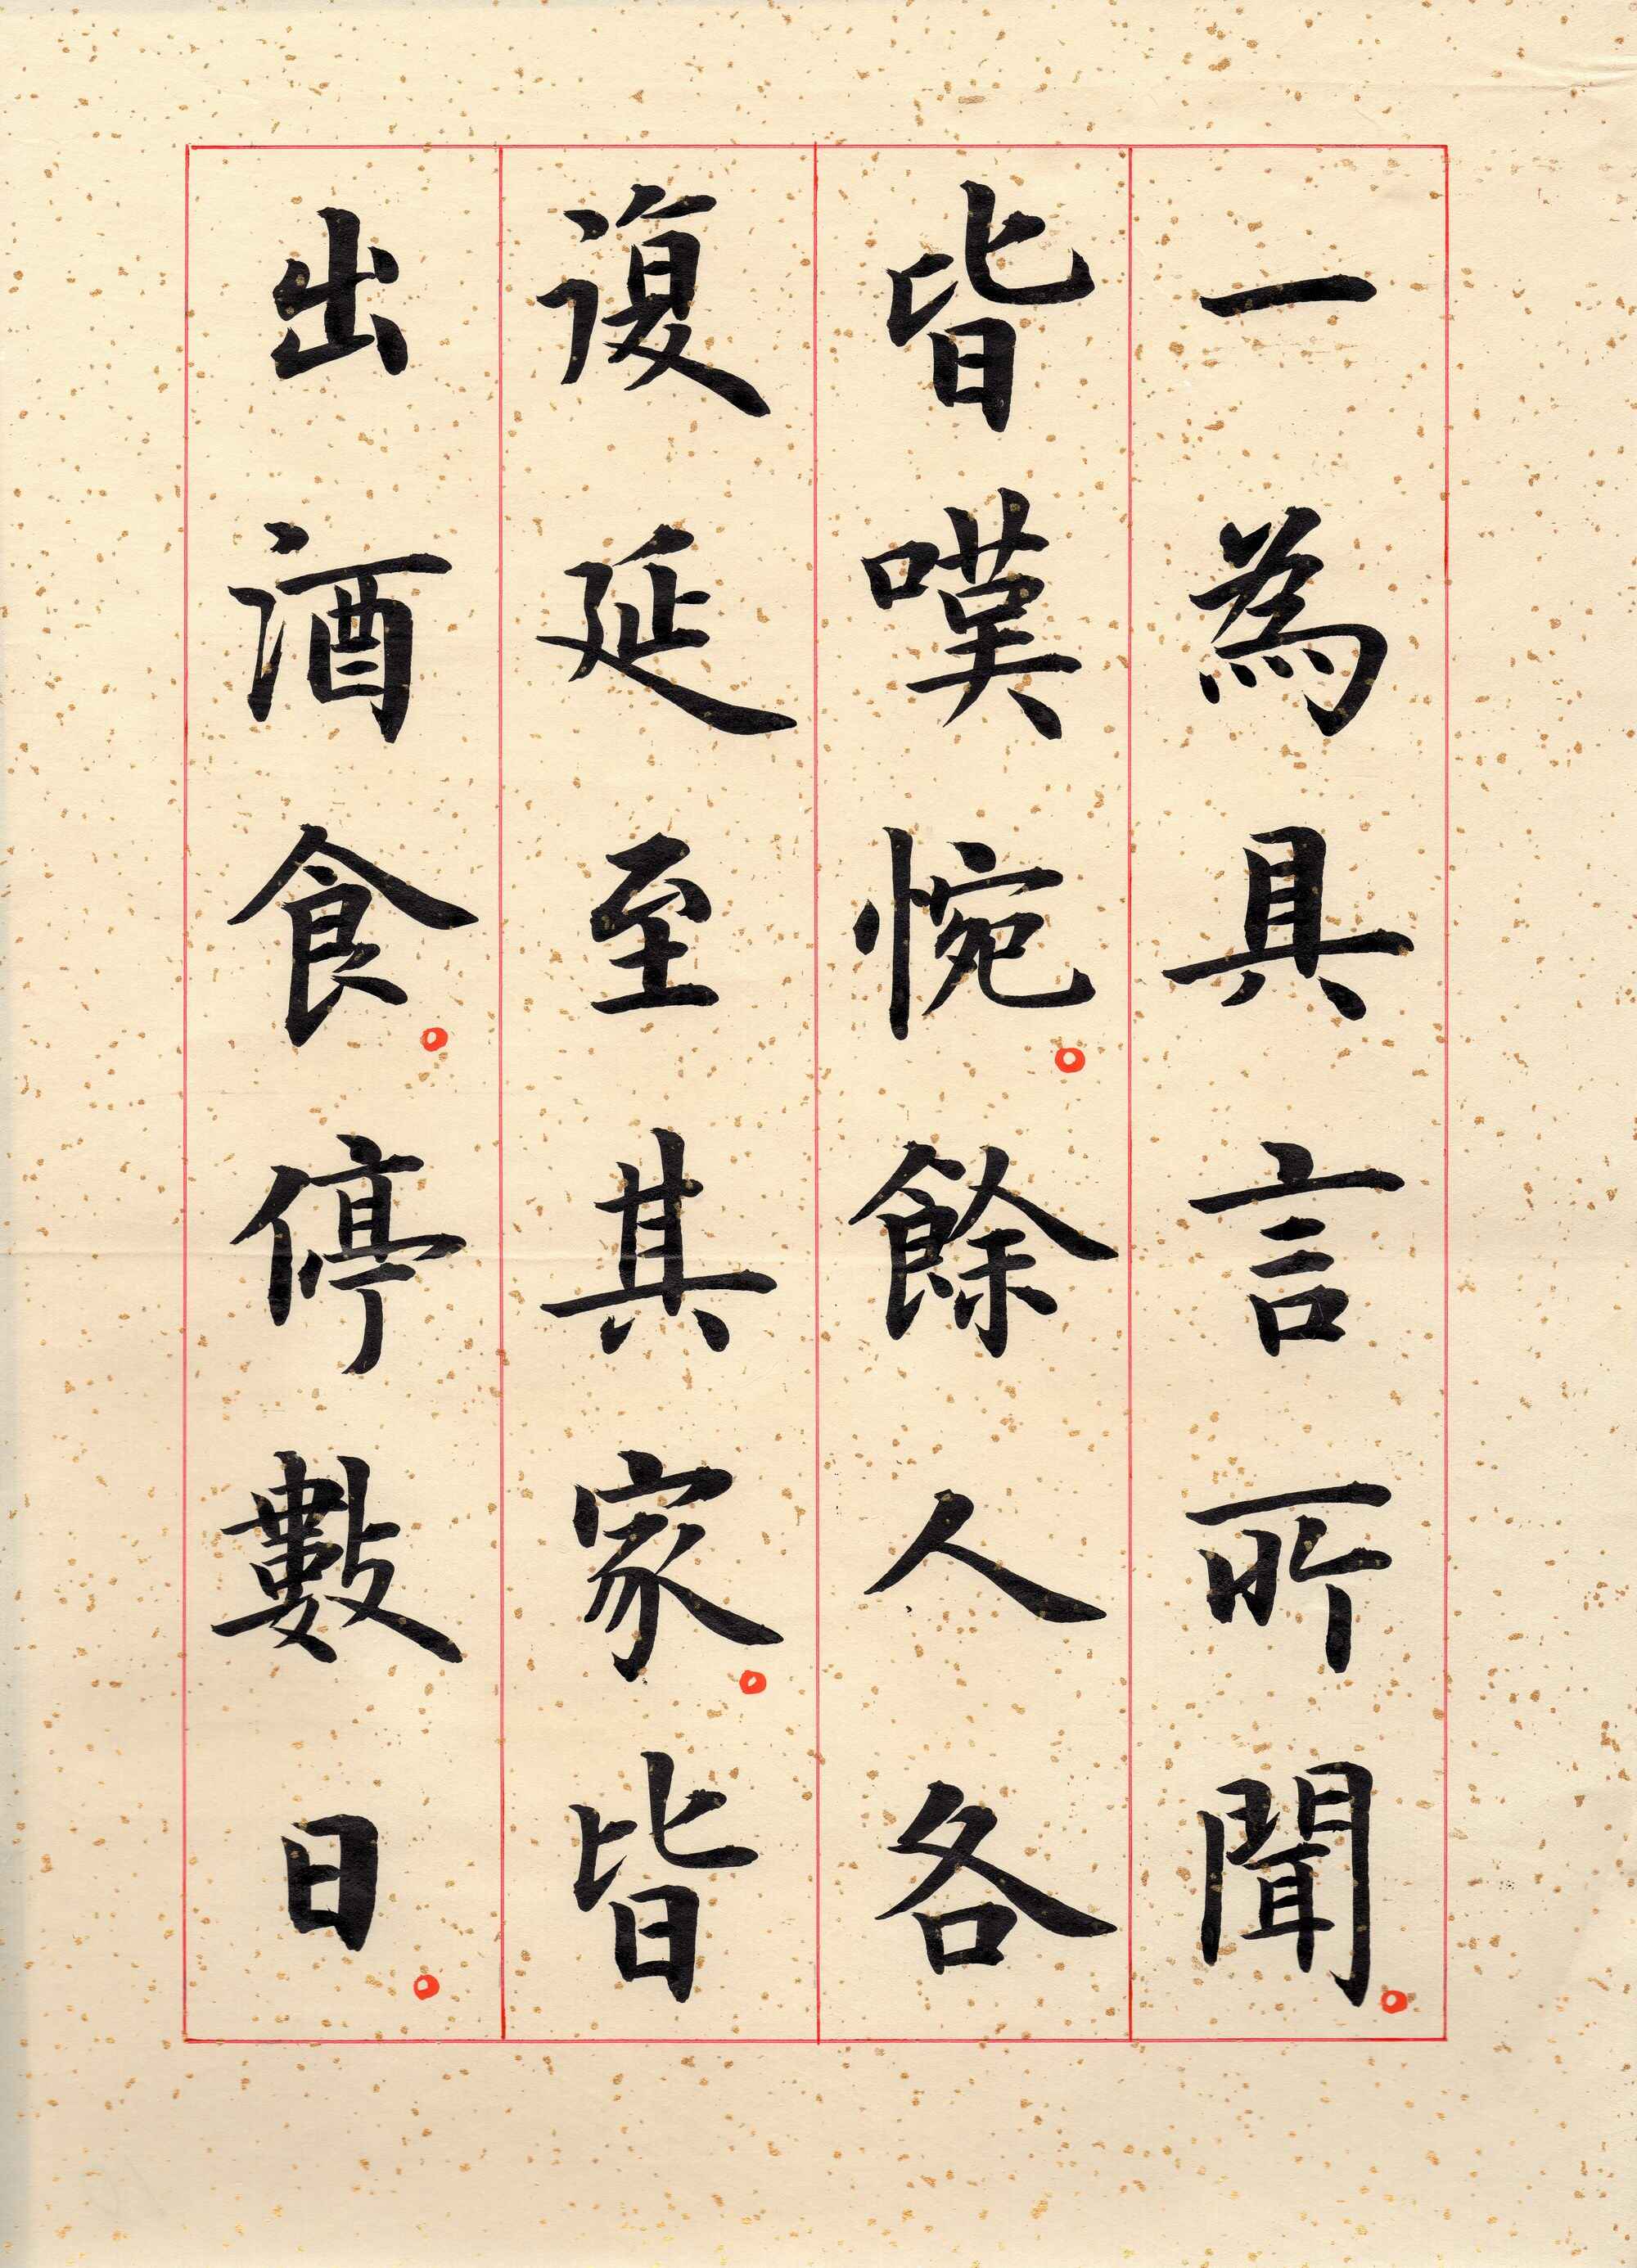 一為具言所聞。
皆嘆惋。餘人各
復延至其家。皆
出酒食。停數日。